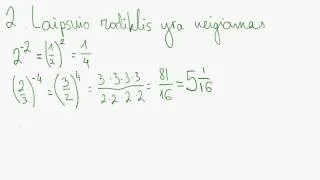 2. Laipsnio rodiklis yra neigiamas
2⁻² = (1/2)² = 1/4
(2/3)⁻⁴ = (3/2)⁴ = 3·3·3·3/2·2·2·2 = 81/16 = 5 1/16